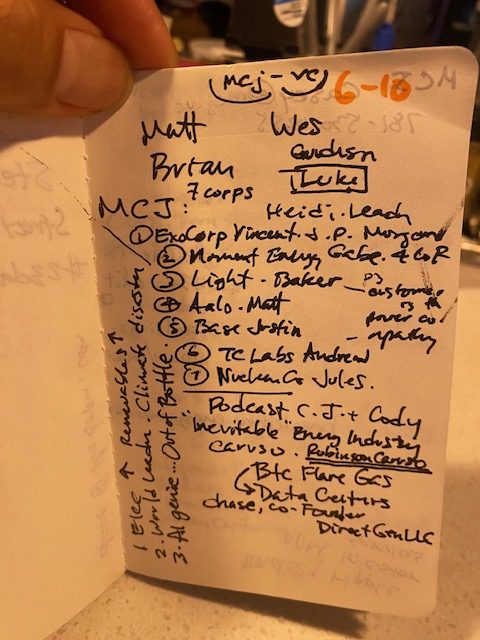 (MCJ-VC) 6-10
Matt Wes
Brian
7 corps Luke
MCJ: Heidi. Leach
① ExoCorp Vincent. J. P. Morgan
② Moment Energy Gabe.
③ Light. Baker -
customer
is the
power co
- apathy
④ Aalo. Matt
⑤ Base Justin
⑥ TC Labs Andrew
⑦ Nuclein Co Jules.
Podcast. C.J + Cody
"Inevitable" Energy Industry
Caruso. Robinson Caruso
Btc Flare Gas
↳ Data Centers
Chase, Co-Founder
DirectGen LLC
1 Elec ↑ Renewables ↑
2. World Leader. Climate disaster
3. AI genie... Out of Bottle.